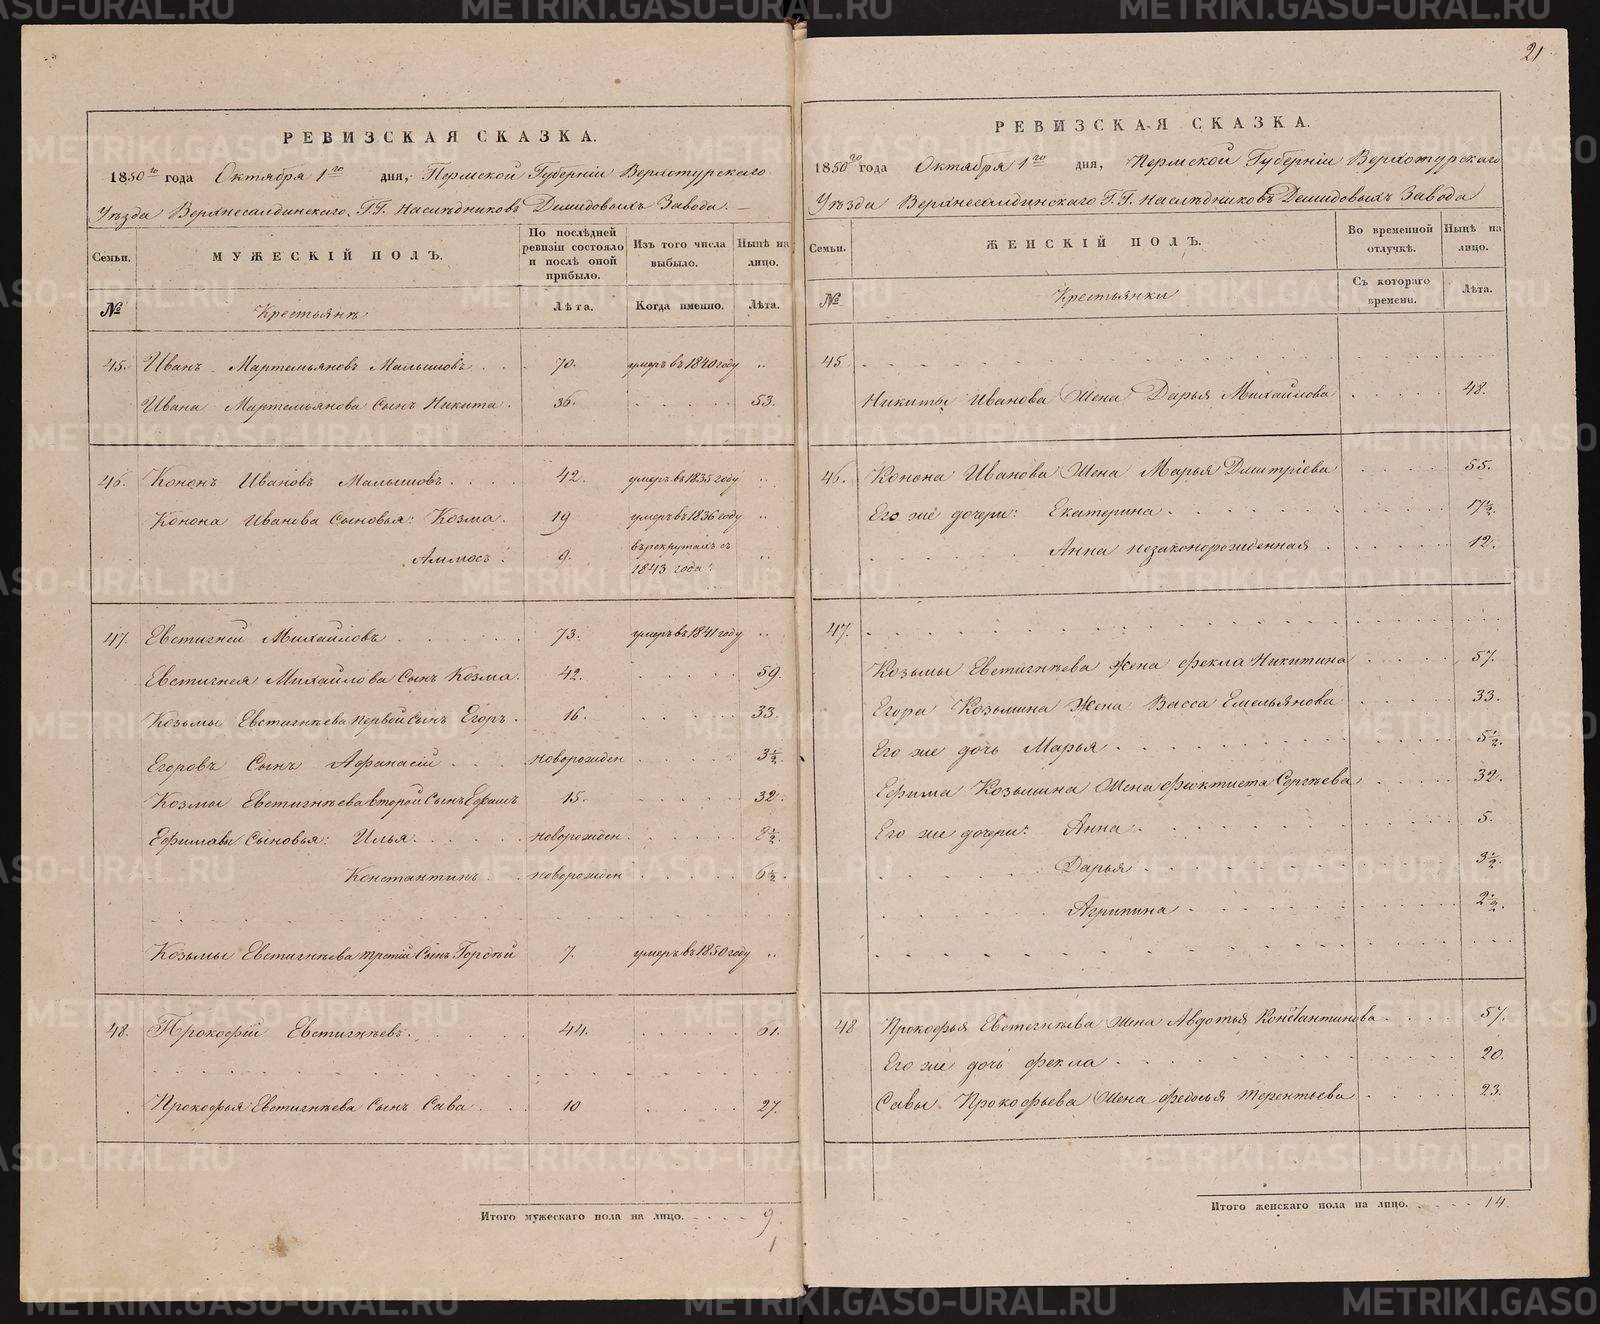 21
РЕВИЗСКАЯ СКАЗКА.
1850го года Октября 1го дня, Пермской Губернiи Верхотурскаго
Уѣзда Верхнесалдинскаго Г.Г. Наслѣдниковъ Демидовыхъ Завода.
Семьи. МУЖЕСКIЙ ПОЛЪ. По послѣдней ревизiи состояло и послѣ оной прибыло. Изъ того числа выбыло. Нынѣ на лицо.
№ Крестьянъ Лѣта. Когда именно. Лѣта.
45. Иванъ Мартемьяновъ Малышовъ 70. умеръ въ 1840 году
Ивана Мартемьянова Сынъ Никита 36. 53.
46. Кононъ Ивановъ Малышовъ 42. умеръ въ 1835 году
Конона Иванова Сыновья: Козма 19 умеръ въ 1836 году
Аммосъ 9. въ рекрутахъ съ 1843 года
47. Евстигней Михайловъ 73. умеръ въ 1841 году
Евстигнея Михайлова Сынъ Козма 42. 59.
Козьмы Евстигнѣева первой Сынъ Егоръ 16. 33.
Егоровъ Сынъ Афанасiй новорожден 3½
Козмы Евстигнѣева второй Сынъ Ефимъ 15. 32.
Ефимавы Сыновья: Илья новорожден
Константинъ новорожден 6½
Козьмы Евстигнѣева третiй Сынъ Гордѣй 7. умеръ въ 1850 году
48. Прокофiй Евстигнѣевъ 44. 61.
Прокофья Евстигнѣева Сынъ Сава 10 27.
Итого мужескаго пола на лицо. 9.
РЕВИЗСКАЯ СКАЗКА.
1850го года Октября 1го дня, Пермской Губернiи Верхотурскаго
Уѣзда Верхнесалдинскаго Г.Г. Наслѣдниковъ Демидовыхъ Завода
Семьи. ЖЕНСКIЙ ПОЛЪ. Во временной отлучкѣ. Нынѣ на лицо.
№ Крестьянки Съ котораго времени. Лѣта.
45
Никиты Иванова Жена Дарья Михайлова 48.
46. Конона Иванова Жена Марья Дмитрiева 55.
Его же дочери: Екатерина 17½
Анна незаконорожденная 12.
47.
Козьмы Евстигнѣева жена Фекла Никитина 57.
Егора Козьмина жена Васса Емельянова 33.
Его же дочь Марья 5½
Ефима Козьмина Жена Феоктиста Сергѣева 32.
Его же дочери: Анна 5.
Дарья 3½
Агрипина 2½
48 Прокофья Евстегнѣева Жена Авдотья Константинова 57.
Его же дочь Фекла 20.
Савы Прокофьева Жена Федосья Терентьева 23.
Итого женскаго пола на лицо. 14
METRIKI.GASO-URAL.RU